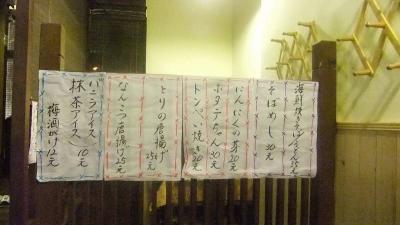 そばめし 30元
にんにくの芽 20元
ホタテちゃん 30元
トンペイ焼き 20元
とりの唐揚げ 25元
なんこつ唐揚げ 25元
バニラアイス
抹茶アイス 10元
梅酒がけ 12元